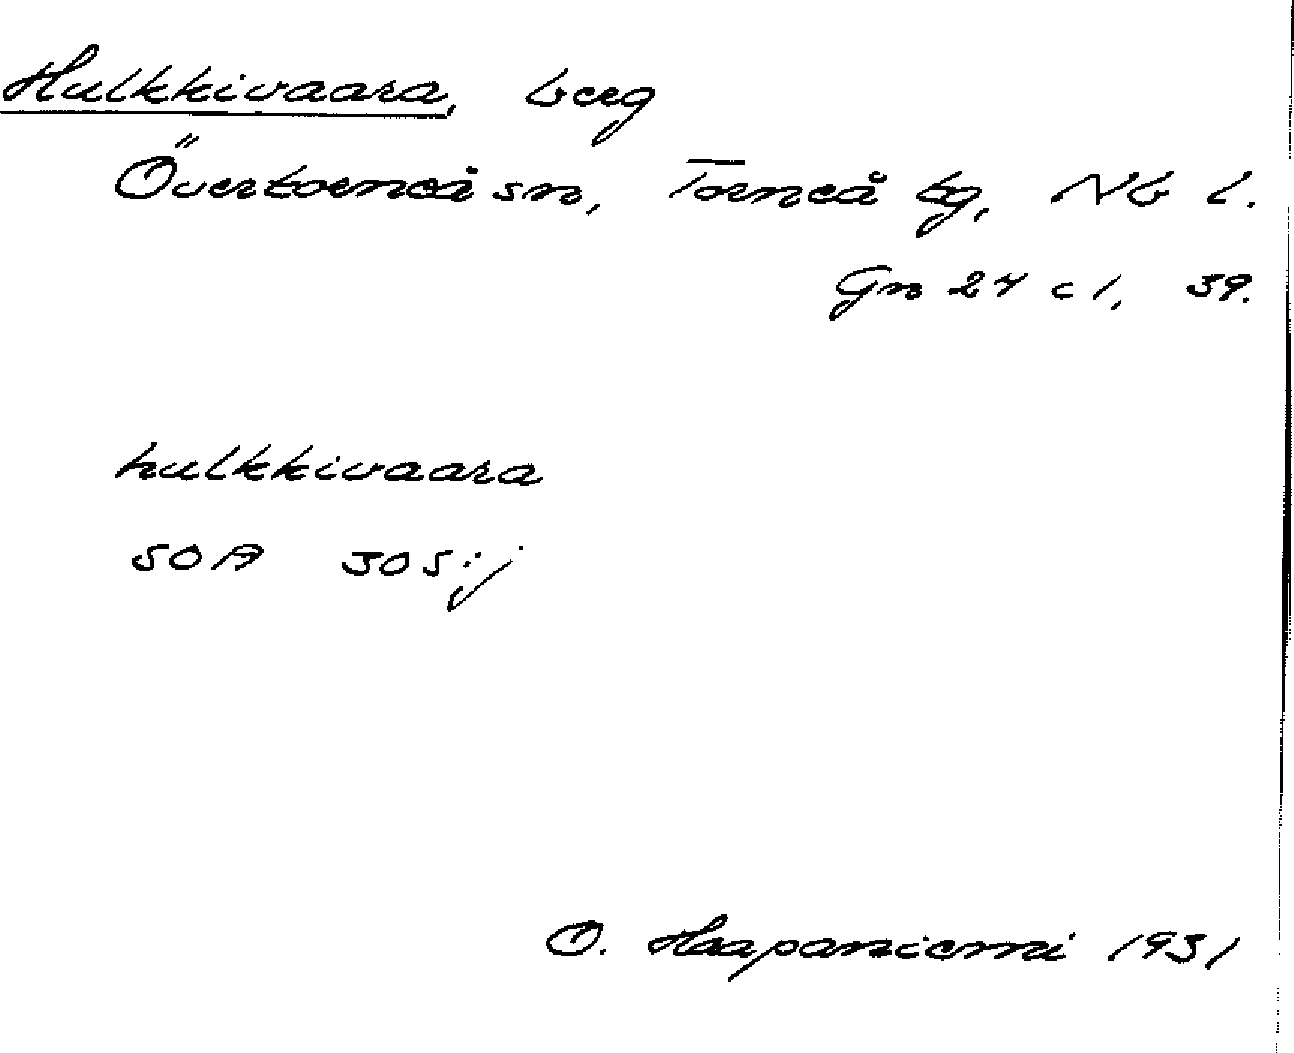 Hulkkivaara, berg
Övertorneå sn, Torneå tg, Nb l.
Gn 24 c 1, 39.
hulkkivaara
SOA 305:j
O. Haapaniemi 1931